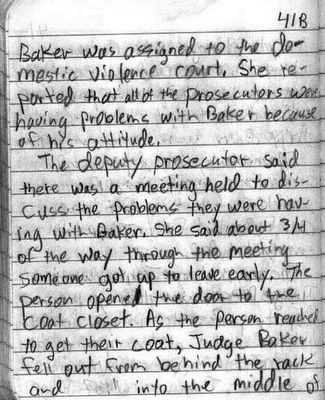 41B
Baker was assigned to the do-
mestic violence court. She re-
ported that all of the prosecutors were
having problems with Baker because
of his attitude.
The deputy prosecutor said
there was a meeting held to dis-
cuss the problems they were hav-
ing with Baker. She said about 3/4
of the way through the meeting
someone got up to leave early. The
person opened the door to the
coat closet. As the person reached
to get their coat, Judge Baker
fell out from behind the rack
and into the middle of